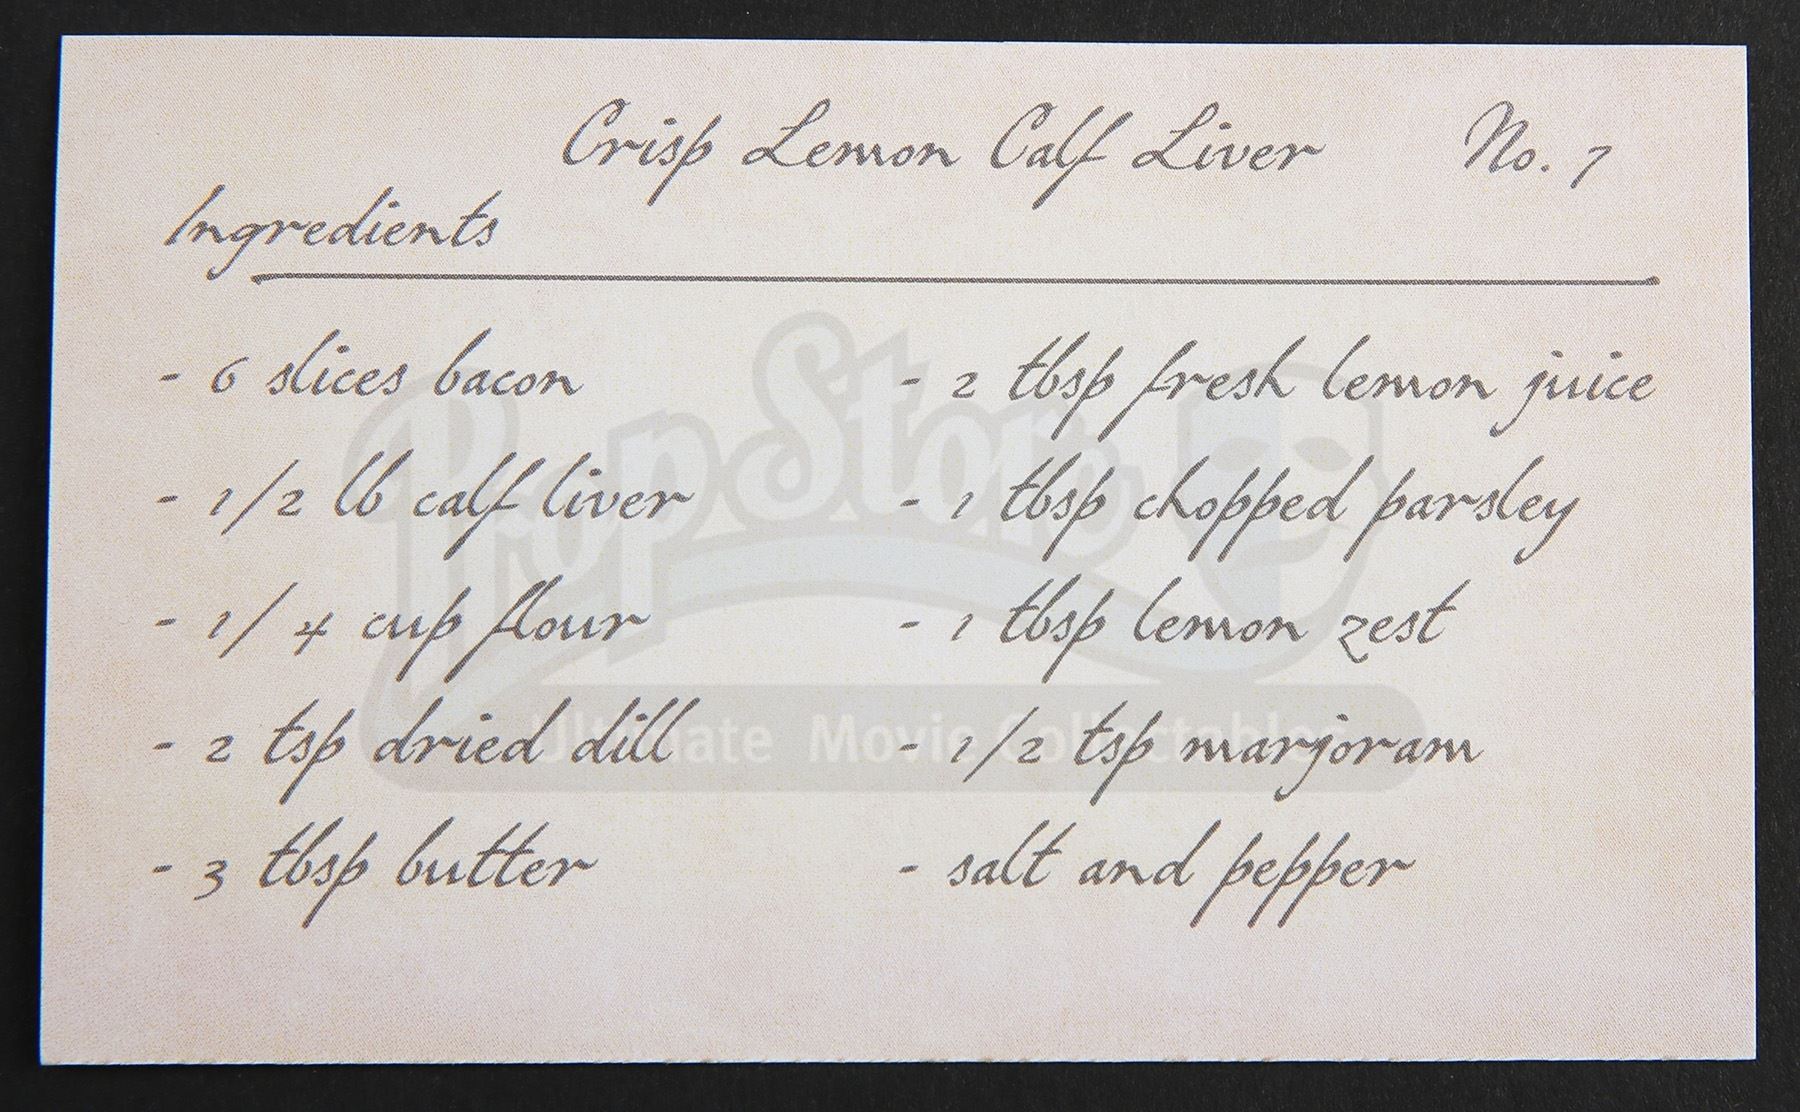 Crisp Lemon Calf Liver No. 7
Ingredients
- 6 slices bacon
- 1/2 lb calf liver
- 1/4 cup flour
- 2 tsp dried dill
- 3 tbsp butter
- 2 tbsp fresh lemon juice
- 1 tbsp chopped parsley
- 1 tbsp lemon zest
- 1/2 tsp marjoram
- salt and pepper
Prop Store
Ultimate Movie Collectables